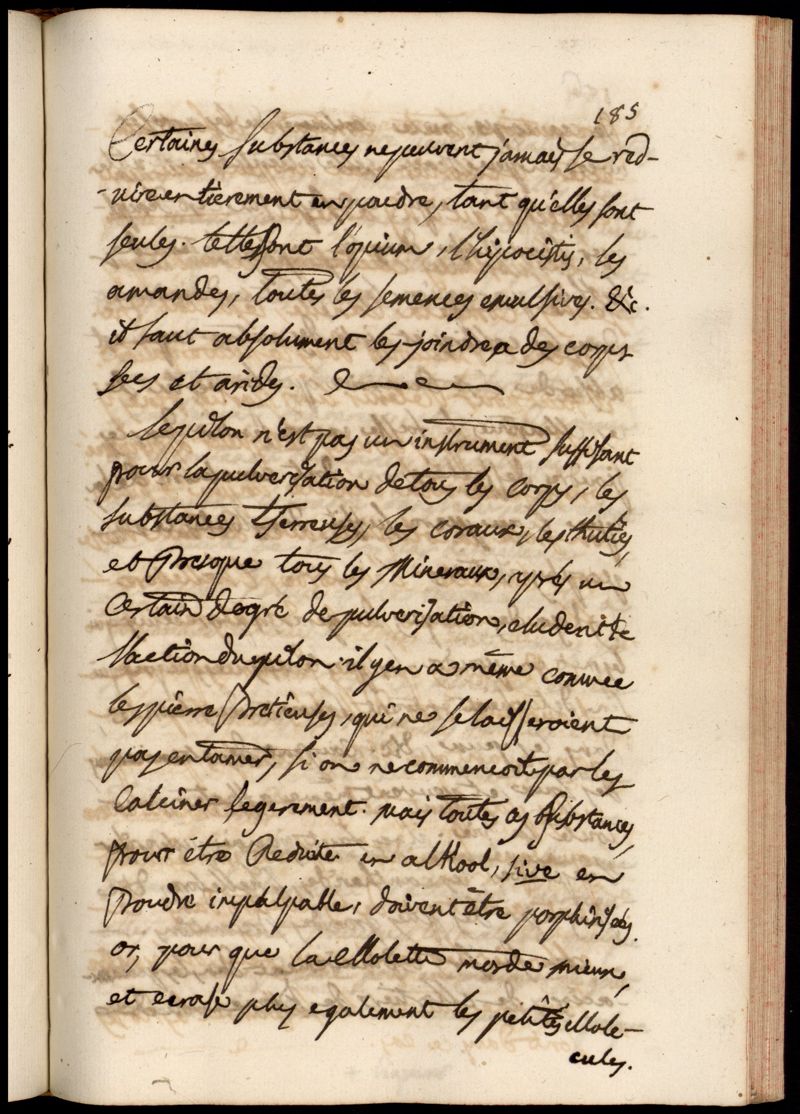 185
Certaines substances ne peuvent jamais se red-
-uire entierement en poudre, tant qu'elles sont
seules. telles sont l'opium, l'hipocistis, les
amandes, toutes les semences emulsives. &c.
il faut absolument les joindre a des corps
secs et arides.
le pilon n'est pas un instrument suffisant
pour la pulverisation de tous les corps, les
substances terreuses, les coraux, les thuties,
et presque tous les Mineraux, après un
Certain degré de pulverisation, eludent de
l'action du pilon. il y en a même comme
les pierre pretieuses, qui ne se laisseroient
pas entamer, si on ne commencoit par les
Calciner legerement. mais toutes ces substances,
pour étre Reduite en alkool, sive en
Poudre impalpable, doivent être porphirisées.
or, pour que la Molette morde mieux,
et ecrase plus egalement les petites Mole-
cules.